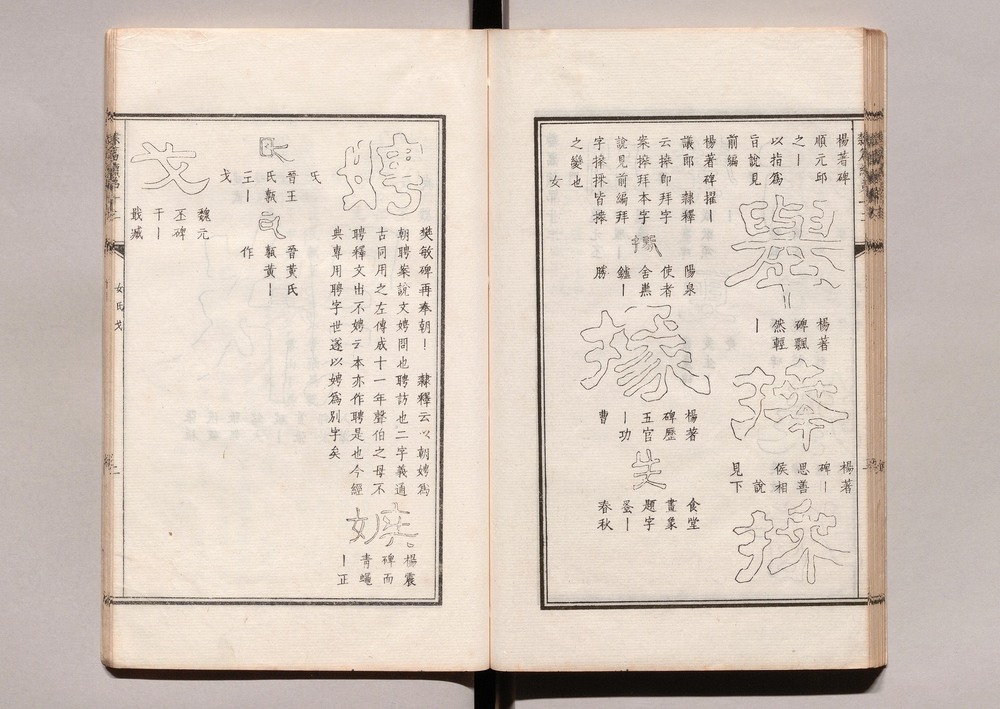 楊著碑
順元邱
之丨
以指爲
旨說見
前編
舉
楊著
碑飄
然輕
丨
捧
楊著
碑丨
思善
侯相
說
見下
楊著碑擢丨
議郎 隸釋
云捧即拜字
案捧拜本字
說見前編拜
字捧採皆捧
之變也
陽泉
使者
舍熏
鑪丨
勝
掾
楊著
碑歷
五官
丨功
曹
食堂
畫象
題字
蚤丨
春秋
女
娉
樊敏碑再奉朝丨 隸釋云以朝娉爲
朝聘案說文娉問也聘訪也二字義通
古同用之左傳成十一年聲伯之母不
聘釋文出不娉云本亦作聘是也今經
典專用聘字世遂以娉爲別字矣
楊震
碑而
青蠅
丨正
氏
氏
晉王
氏甎
王丨
氏
晉黃氏
甎黃丨
作
戈
戈
魏元
丕碑
干丨
戢臧
女氏戈